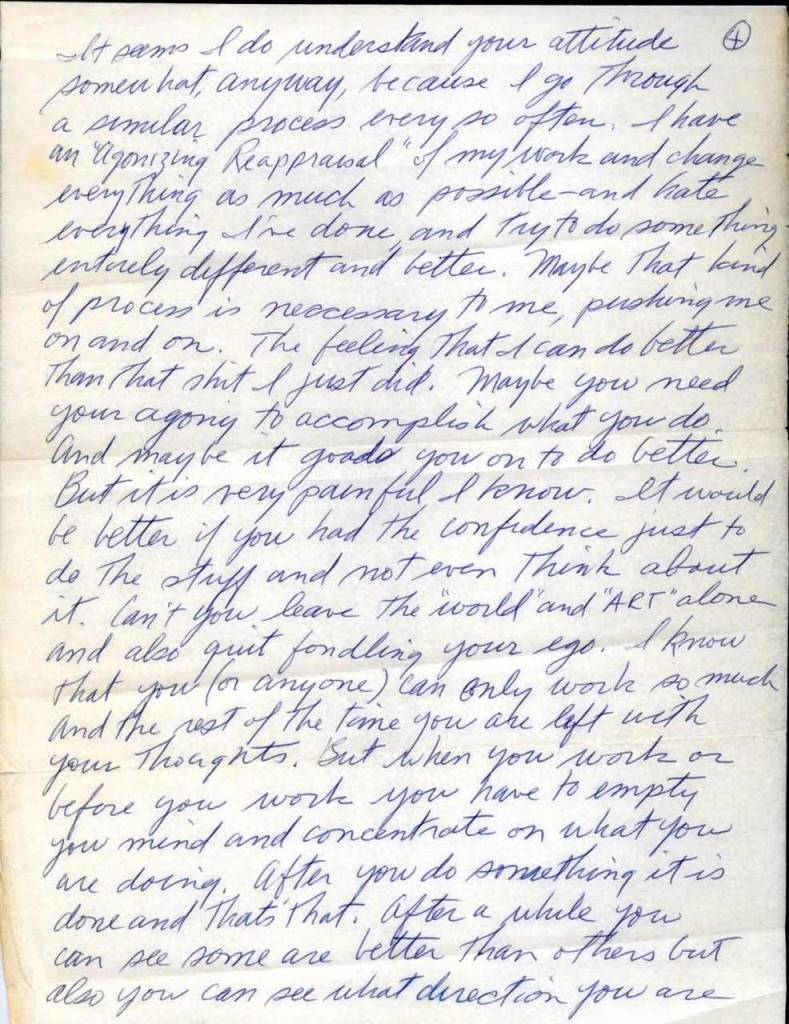 4
It seems I do understand your attitude
somewhat, anyway, because I go through
a similar process every so often. I have
an "Agonizing Reappraisal" of my work and change
everything as much as possible—and hate
everything I've done, and try to do something
entirely different and better. Maybe that kind
of process is neccessary to me, pushing me
on and on. The feeling that I can do better
than that shit I just did. Maybe you need
your agony to accomplish what you do.
And maybe it goads you on to do better.
But it is very painful I know. It would
be better if you had the confidence just to
do the stuff and not even think about
it. Can't you leave the "world" and "ART" alone
and also quit fondling your ego. I know
that you (or anyone) can only work so much
and the rest of the time you are left with
your thoughts. But when you work or
before you work you have to empty
you mind and concentrate on what you
are doing. After you do something it is
done and that's that. After a while you
can see some are better than others but
also you can see what direction you are